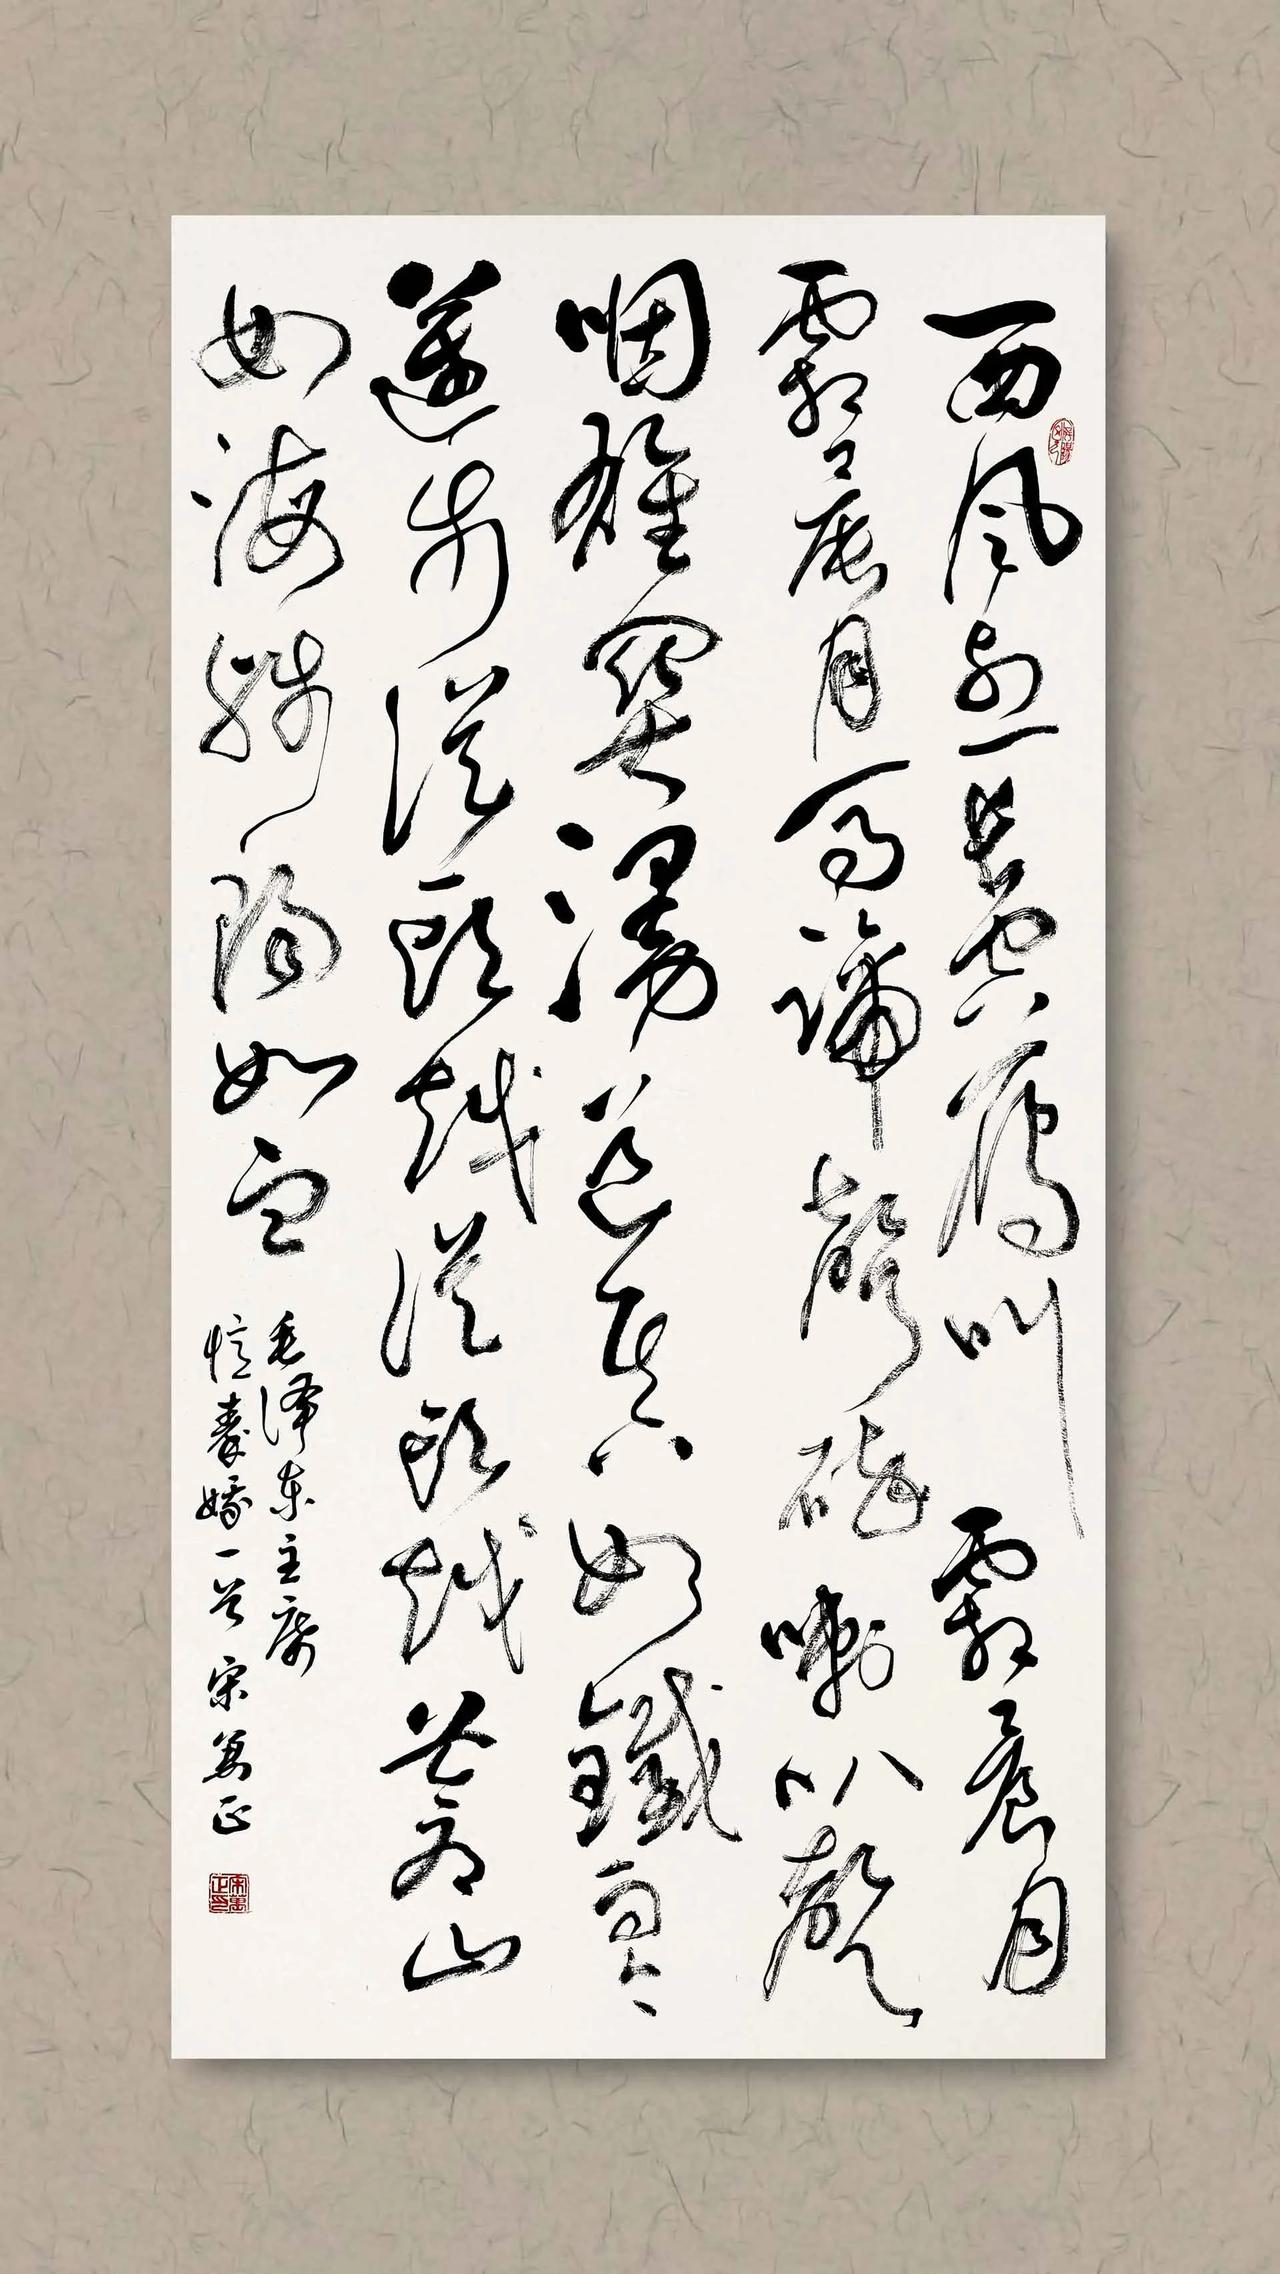 西風烈長空雁叫霜晨月
霜晨月馬蹄聲碎喇叭聲
咽雄關漫道真如鐵而今
邁步從頭越從頭越蒼山
如海殘陽如血
毛澤東主席
憶秦娥一首 宋萬正